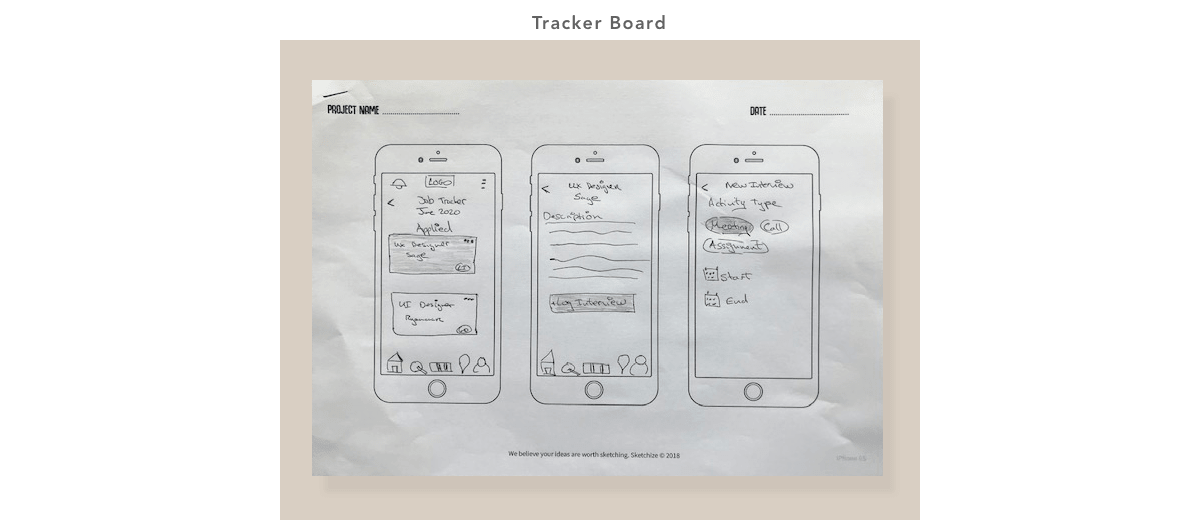 Tracker Board
PROJECT NAME
DATE
LOGO
Job Tracker
June 2020
Applied
UX Designer
Sage
UI Designer
UX Designer
Sage
Description
+Log Interview
New Interview
Activity Type
Meeting
Call
Assignment
Start
End
We believe your ideas are worth sketching. Sketchize © 2018
iPhone 6S